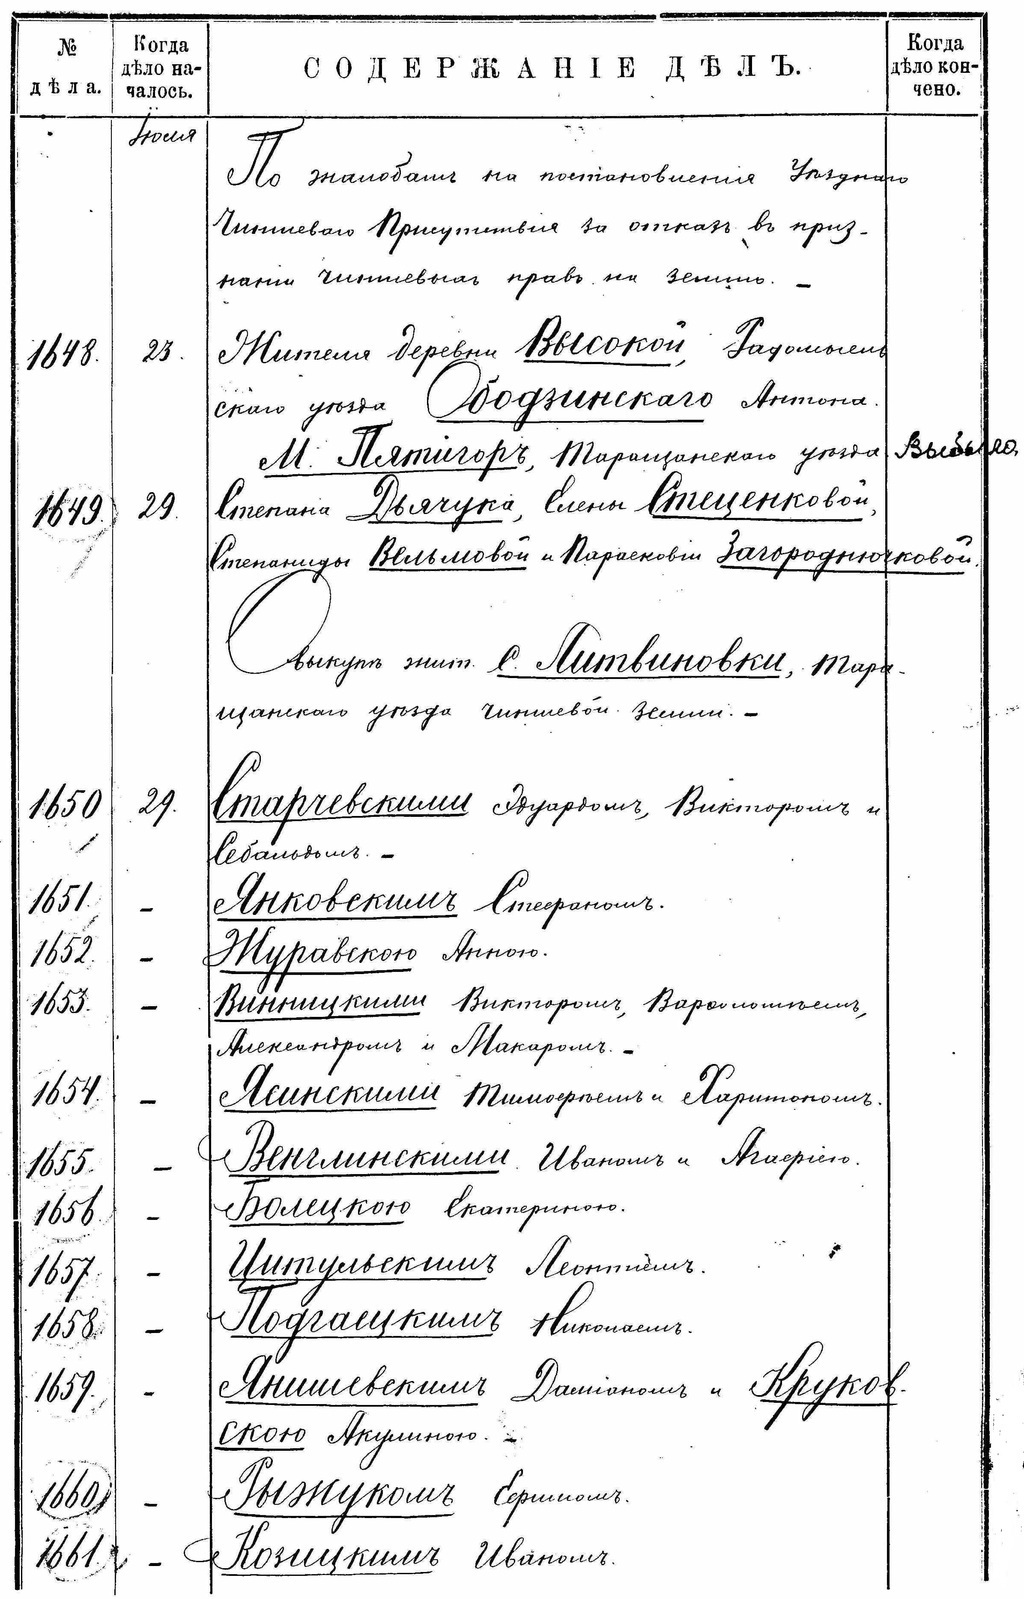 № дѣла.
Когда дѣло началось.
СОДЕРЖАНІЕ ДѢЛЪ.
Когда дѣло кончено.
Іюля
По жалобамъ на постановленія Уѣзднаго
Чиншеваго Присутствія за отказъ въ приз-
наніи чиншевыхъ правъ на землю. –
1648. 23. Жителя деревни Высокой, Радомысль
скаго уѣзда Ободзинскаго Антона.
М. Пятигоръ, Таращанскаго уѣзда Выбыло
1649. 29. Степана Дьячука, Елены Стеценковой,
Степаниды Вельмовой и Парасковіи Загороднючковой.
О выкупѣ жит. с. Литвиновки, Тара-
щанскаго уѣзда чиншевой земли. –
1650 29. Старчевскими Эдуардомъ, Викторомъ и
Себальдомъ. –
1651. – Янковскимъ Стефаномъ.
1652. – Журавскою Анною.
1653. – Винницкими Викторомъ, Варфоломѣемъ,
Александромъ и Макаромъ. –
1654. – Ясинскими Тимофѣемъ и Харитономъ.
1655. – Венглинскими Иваномъ и Агафіею.
1656. – Болецкою Екатериною.
1657. – Цитульскимъ Леонтіемъ.
1658. – Подгаецкимъ Николаемъ.
1659. – Янишевскимъ Даміаномъ и Круков-
скою Акулиною. –
1660. – Рыжукомъ Сергіемъ.
1661. – Козицкимъ Иваномъ.